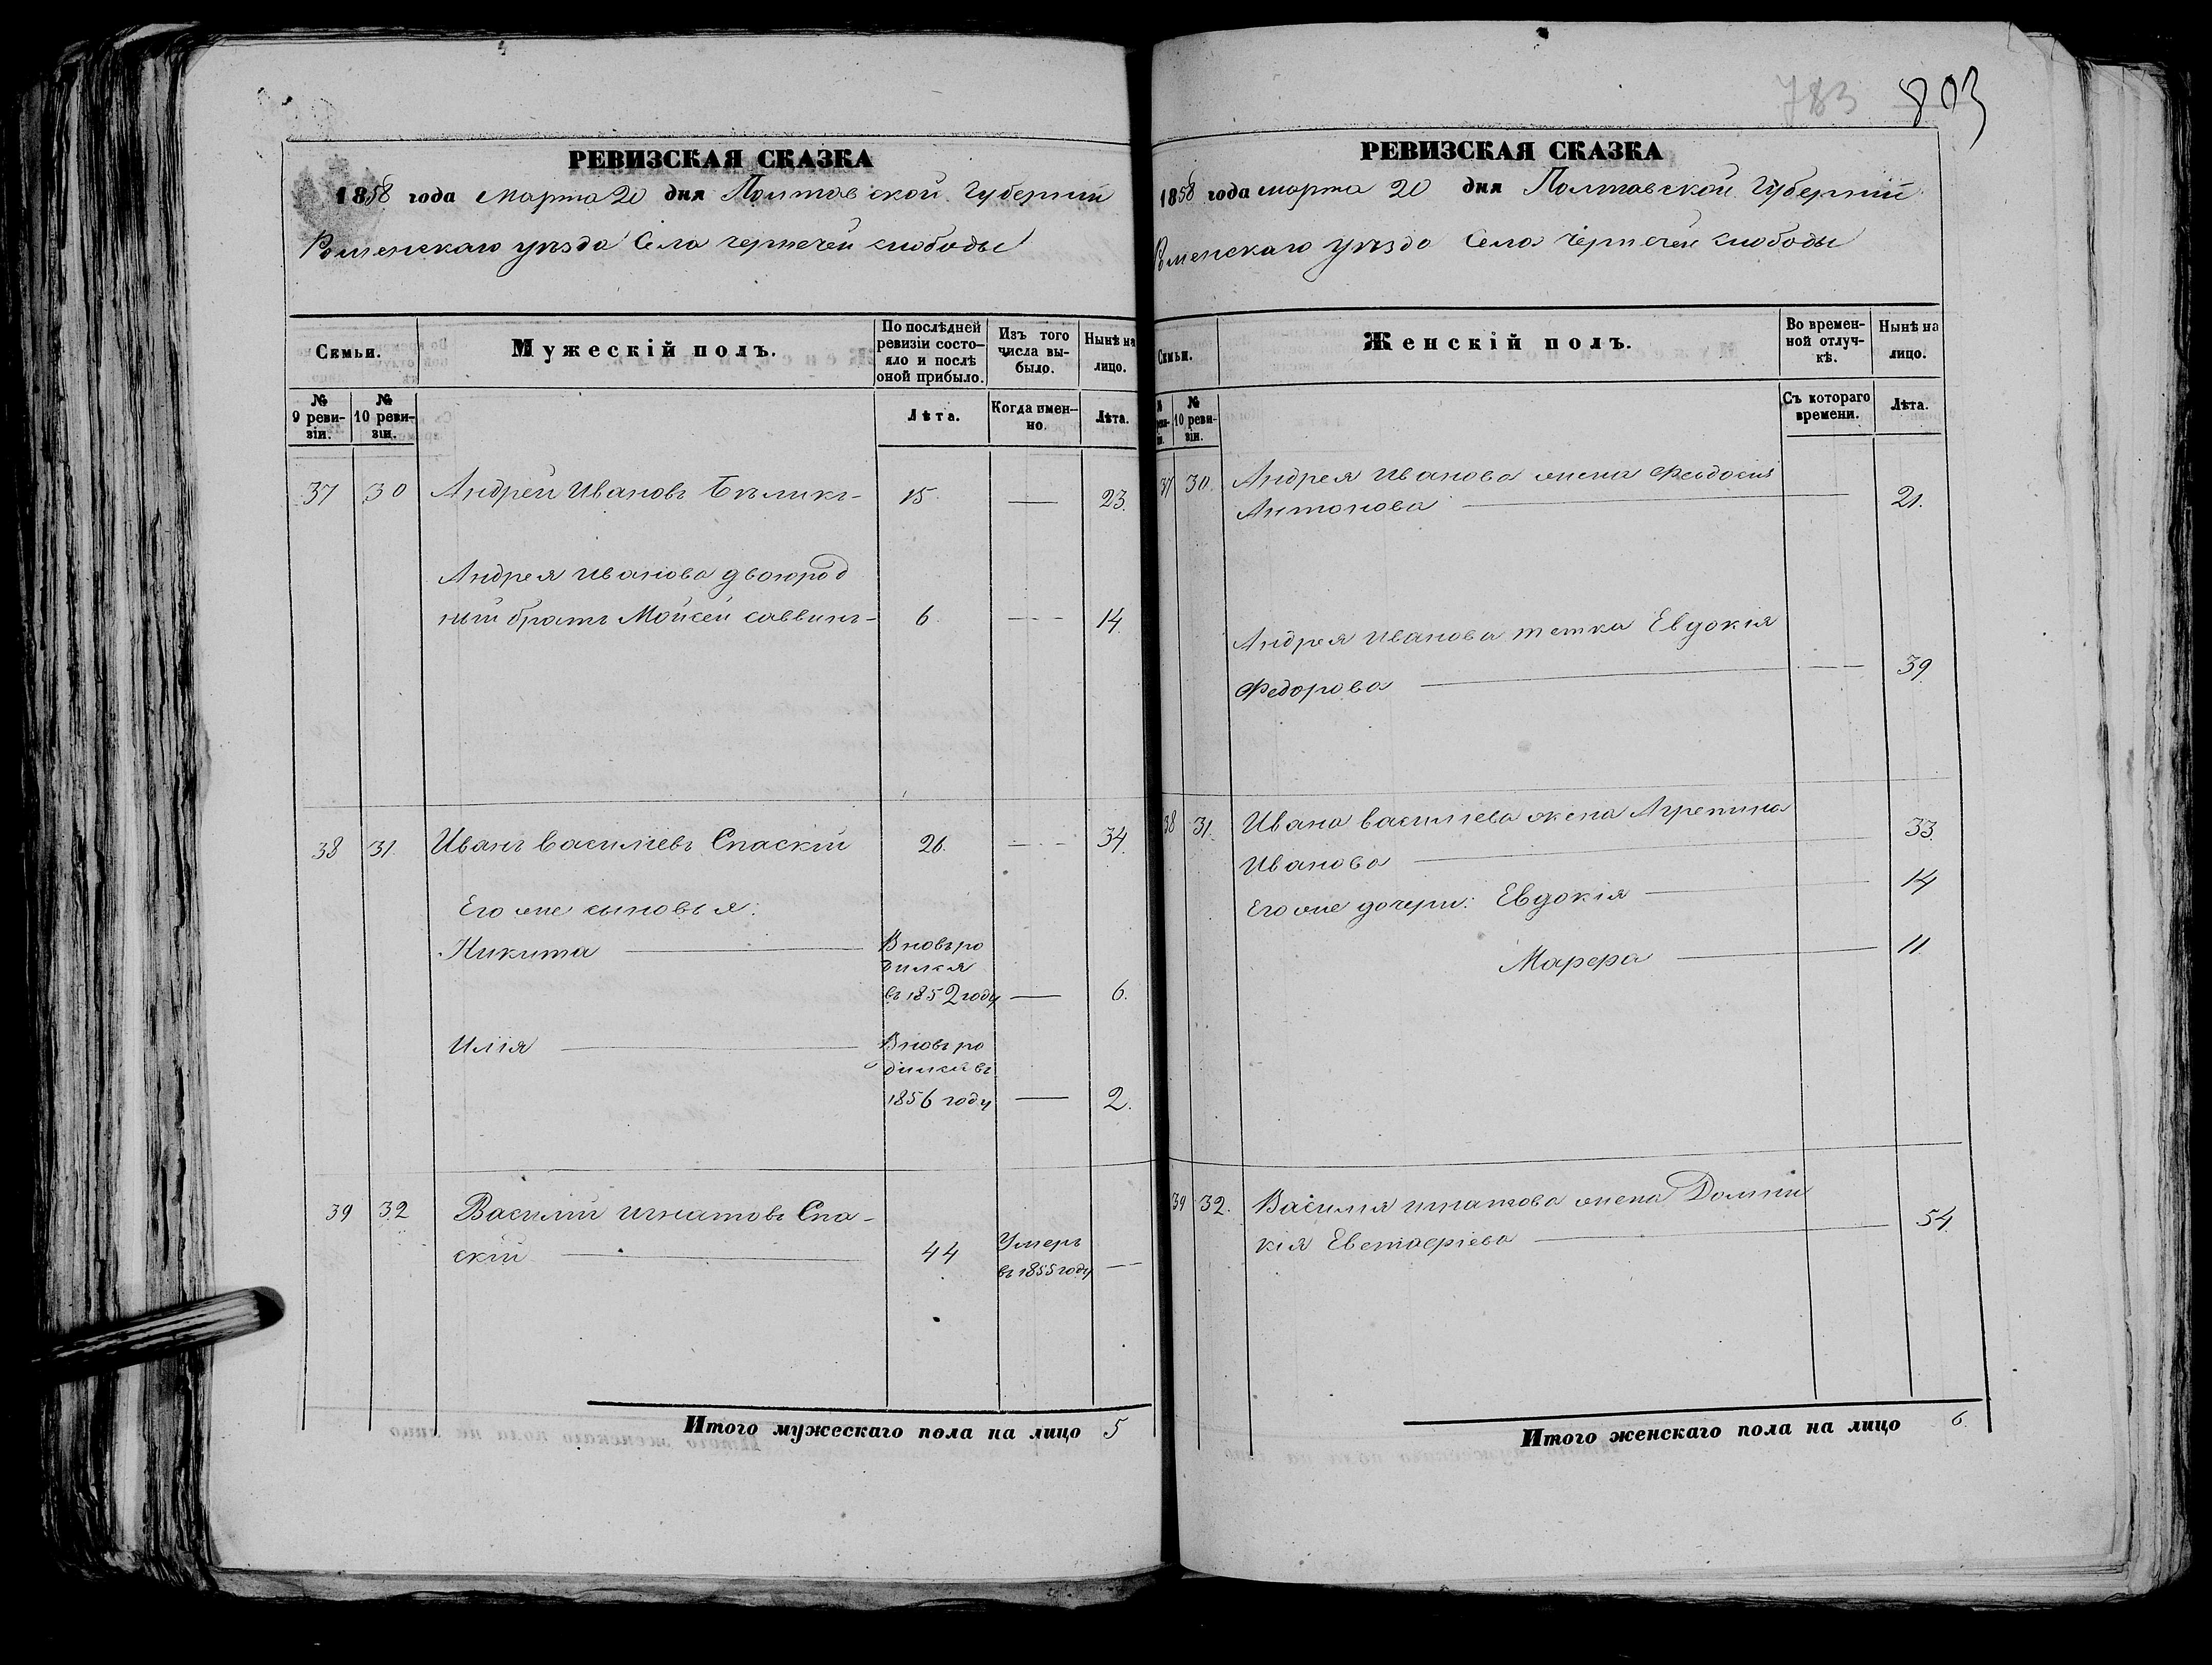 783 803
РЕВИЗСКАЯ СКАЗКА
1858 года Марта 20 дня Полтавской Губерніи
Роменскаго уѣзда Села чернечей слободы
Семьи.
Мужескій полъ.
По послѣдней ревизіи состояло и послѣ оной прибыло.
Изъ того числа выбыло.
Нынѣ на лицо.
№ 9 ревизіи.
№ 10 ревизіи.
Лѣта.
Когда именно.
Лѣта.
37 30 Андрей Ивановъ 15 — 23.
Андрея Иванова двоюрод
ный братъ Мойсей саввинъ 6 — 14
38 31. Иванъ василіевъ Спаскій 26. — 34.
Его же сыновья:
Никита — Вновь ро
дился
въ 1852 году — 6.
Илія — Вновь ро
дился въ
1856 году — 2.
39 32 Василій игнатовъ Спа-
скій — 44 Умеръ
въ 1855 году —
Итого мужескаго пола на лицо 5
РЕВИЗСКАЯ СКАЗКА
1858 года марта 20 дня Полтавской Губерніи
Роменскаго уѣзда Села чернечей слободы
Семьи.
Женскій полъ.
Во временной отлучкѣ.
Нынѣ на лицо.
№ 10 ревизіи.
Съ котораго времени.
Лѣта.
37 30. Андрея Иванова жена Феодосия
Антонова — 21.
Андрея Иванова тетка Евдокія
Федорова — 39
38 31. Ивана василіева жена Агрепина
Иванова — 33.
Его же дочери: Евдокія — 14
Марфа — 11.
39 32. Василия игнатова жена Домни
кія Евстафіева — 54
Итого женскаго пола на лицо 6.